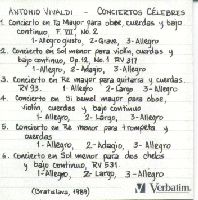 ANTONIO VIVALDI - CONCIERTOS CÉLEBRES
1. Concierto en Fa Mayor para oboe, cuerdas y bajo
continuo, F. VII, No. 2
1-Allegro giusto, 2-Grave, 3-Allegro
2. Concierto en Sol menor para violín, cuerdas y
bajo continuo, Op. 12, No. 1 RV 317
1-Allegro, 2-Adagio, 3-Allegro
3. Concierto en Re mayor para guitarra y cuerdas
RV 93. 1-Allegro 2-Largo 3-Allegro
4. Concierto en Si bemol mayor para oboe,
violín, cuerdas y bajo continuo
1-Allegro, 2-Largo, 3-Allegro
5. Concierto en Re menor para trompeta y
cuerdas
1-Allegro, 2-Adagio, 3-Allegro
6. Concierto en Sol menor para dos chelos
y bajo continuo, RV 531.
1-Allegro, 2-Largo, 3-Allegro
(Bratislava, 1989)
Verbatim